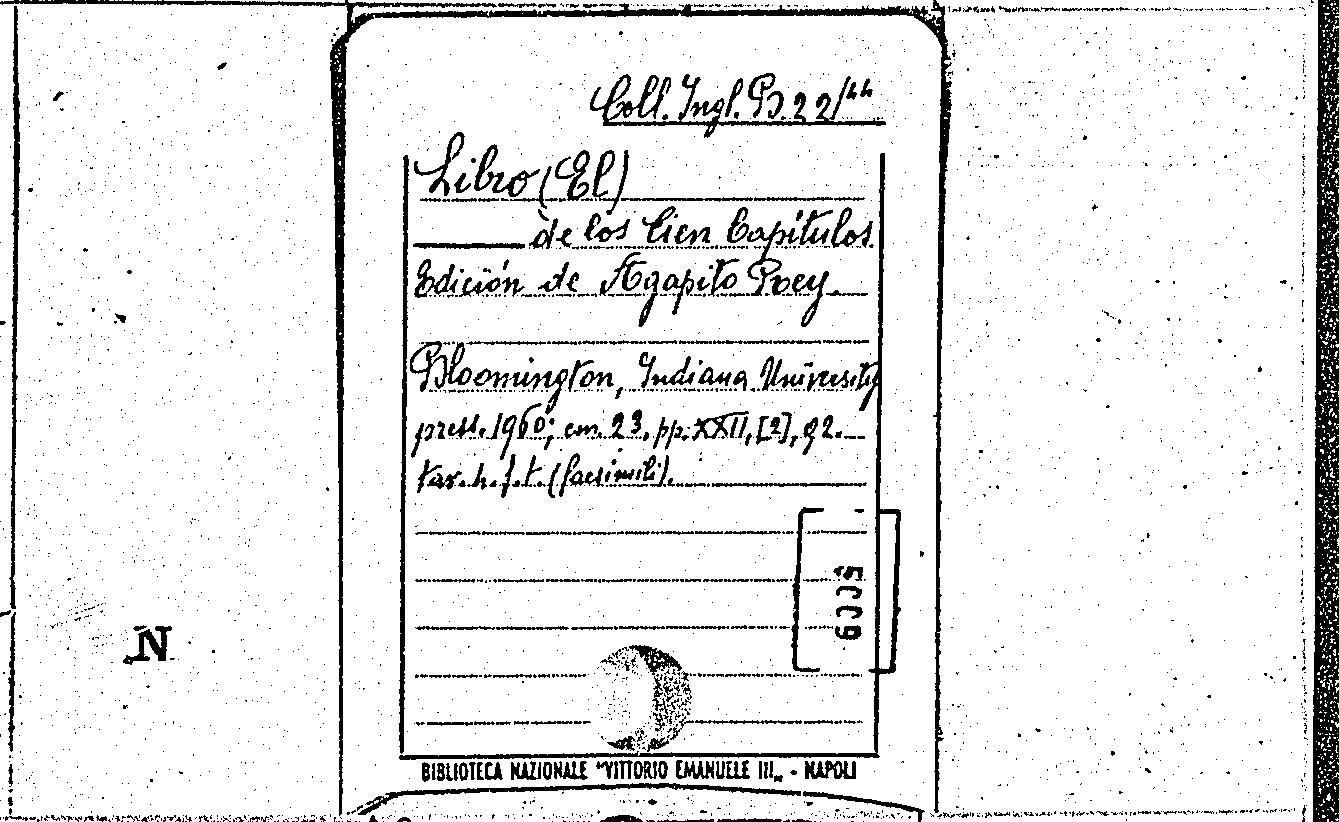 Coll. Ingl. B. 22/44
Libro (El)
de los Cien Capítulos
Edición de Agapito Rey.
Bloomington, Indiana University
press. 1960; cm. 23, pp. XXII, [2], 92.
tav. h. f. t. (facsimili).
N
BIBLIOTECA NAZIONALE "VITTORIO EMANUELE III„ - NAPOLI